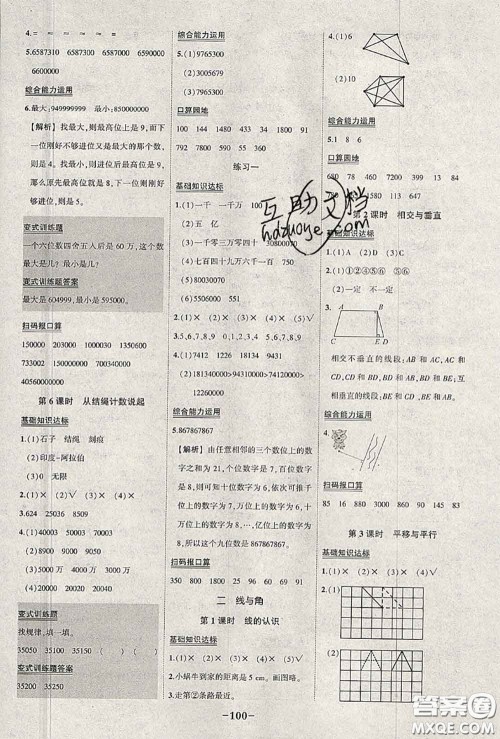 4.= = ≈ ≈ ≈ =
5.6587310 6587300 6587000 6590000
6600000
综合能力运用
6.最大:949999999 最小:850000000
【解析】找最大,则最高位上是 9,而下
一位刚好不够进位又是最大的那个数,
则是 4。找最小,则最高位上是 8,而后
那么原先的最高位是 8,下一位刚好能
够进位且最小的是 5。
变式训练题
一个六位数四舍五入后是 60 万,这个数
最大是几?最小是几?
变式训练题答案
最大是 604999,最小是 595000。
扫码报口算
150000 203000 160000 31000
733000 15000000 340000 201000
40560000000
第 6 课时 从结绳计数说起
基础知识达标
1.(1)石子 结绳 刻痕
(2)印度-阿拉伯
(3)0 无限
2.(1)✕ (2)✕ (3)✕
3.624 635
4.(1)40003 50003 60003
(2)8040 9050
(3)4820 4830 4840
(4)20000 20020 20040
变式训练题
找规律,填一填。
35050 35100 35150 ( ) ( )
变式训练题答案
35200 35250
综合能力运用
5.(1)9765300
(2)9765300
(3)9750630
口算园地
180 900 432 34 1800 4000
91 637 744 350 14 780
练习一
基础知识达标
1.(1)一千 一千 一万
(2)五 亿
(3)一千零三万零四十 30080000
(4)七百四十九万六千一百
(5)5506000
2.(1)✕ (2)✕ (3)✕ (4)✕ (5)√
3.5,6,7,8,9 0,1,2,3,4
4.(1)18134000万>18134000万
(2)181340000>18134000万
(3)181340000>18134万
综合能力运用
5.867867867
【解析】由任意相邻的三个数位上的数字
之和为 21,个位数字是 7,百位数字
是 8,可推知十位数字为 6,依次可推千
位上的数字为 7,万位上的数字为 6,十
万位上的数字为 8,百万位上的数字为
7,千万位上的数字为 6,…亿位上的数字
为 8,所以这个九位数是 867867867。
扫码报口算
350 800 1800 25 96 60 69 91
二 线与角
第 1 课时 线的认识
基础知识达标
1.(1)✕ (2)✕ (3)√ (4)✕ (5)✕
2.小蜗牛到家的距离是 5 cm。画图略。
3.走第②条路最近。
4.(1)6
(2)10
综合能力运用
5.1 8 6
口算园地
680 78 460 123 184
720
750 1085
第 2 课时 相交与垂直
基础知识达标
1.(1)A (2)D (3)C
2.(1)①②④⑤ ⑤ ⑥
(2)一定 不一定
3.
A B
C E D
相交不垂直的线段:AB 和 AC, AC 和
CD, CD 和 BD, BD 和 AB, BD 和 BE
互相垂直的线段:AB 和 BE, CD 和 BE
综合能力运用
4.
扫码报口算
85 16 880 360 63 84 15 92
第 3 课时 平移与平行
基础知识达标
1.(1)✕ (2)✕ (3)✕ (4)√
2.(1)
(2)
-100-
互助文档
hdzuoye.com
答案圈
MXQE.COM